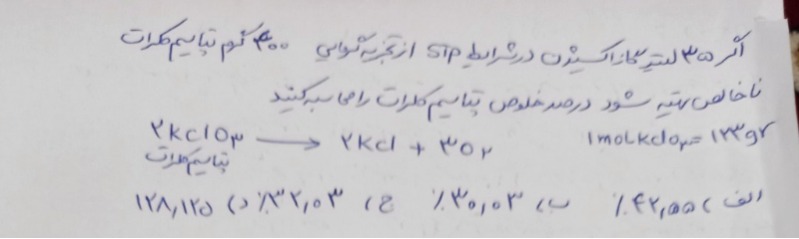 اگر ۳۵ لیتر گاز اکسیژن در شرایط STP از تجزیه گرمایی ۴۰۰ گرم پتاسیم کلرات
ناخالص تهیه شود درصد خلوص پتاسیم کلرات را محاسبه کنید
۲KClO۳ ⟶ ۲KCl + ۳O۲ 1mol KClO۳ = ۱۲۳gr
پتاسیم کلرات
الف) ۴۲٫۵۵٪ ب) ۳۰٫۰۳٪ ج) ۳۲٫۰۳٪ د) ۱۲۸٫۱۲۵